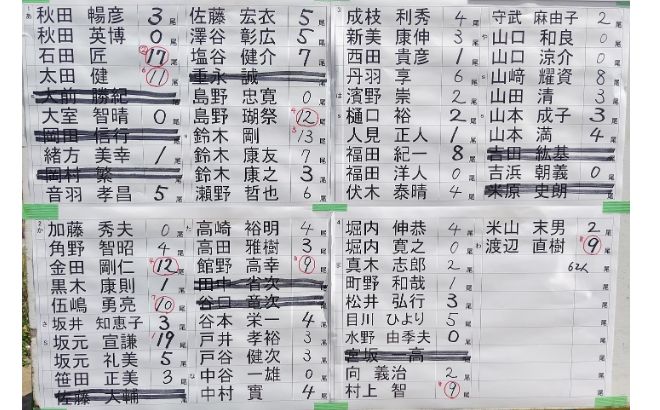 秋田 暢彦 3尾
秋田 英博 0尾
石田 匠 17尾
太田 健 11尾
大前 勝紀 尾
大室 智晴 0尾
岡田 信行 尾
緒方 美幸 1尾
岡村 繁 尾
音羽 孝昌 5尾
佐藤 宏衣 5尾
澤谷 彰広 5尾
塩谷 健介 7尾
重永 誠 尾
島野 忠寛 0尾
島野 瑚祭 12尾
鈴木 剛 13尾
鈴木 康友 7尾
鈴木 康之 3尾
瀬野 哲也 6尾
加藤 秀夫 0尾
角野 智昭 4尾
金田 剛仁 12尾
黒木 康則 1尾
伍嶋 勇亮 10尾
坂井 知恵子 3尾
坂元 宣謙 19尾
坂元 礼美 5尾
笹田 正美 3尾
佐藤 大輔 尾
高崎 裕明 4尾
高田 雅樹 3尾
館野 高幸 9尾
田中 省次 尾
谷口 竜次 尾
谷本 栄一 4尾
戸井 孝裕 3尾
戸谷 健次 3尾
中谷 一雄 0尾
中村 實 4尾
成枝 利秀 4尾
新美 康伸 3尾
西田 貴彦 1尾
丹羽 享 6尾
濱野 崇 2尾
樋口 裕 2尾
人見 正人 1尾
福田 紀一 8尾
福田 洋人 0尾
伏木 泰晴 4尾
守武 麻由子 2尾
山口 和良 0尾
山口 涼介 0尾
山﨑 耀資 8尾
山田 清 3尾
山本 成子 3尾
山本 満 4尾
吉田 紘基 尾
吉浜 朝義 0尾
米原 史朗 尾
堀内 伸恭 4尾
堀内 寛之 0尾
真木 志郎 2尾
町野 和哉 1尾
松井 弘行 3尾
目川 ひより 5尾
水野 由季夫 0尾
宮坂 一高 尾
向 義治 2尾
村上 智 9尾
米山 末男 2尾
渡辺 直樹 9尾
62人